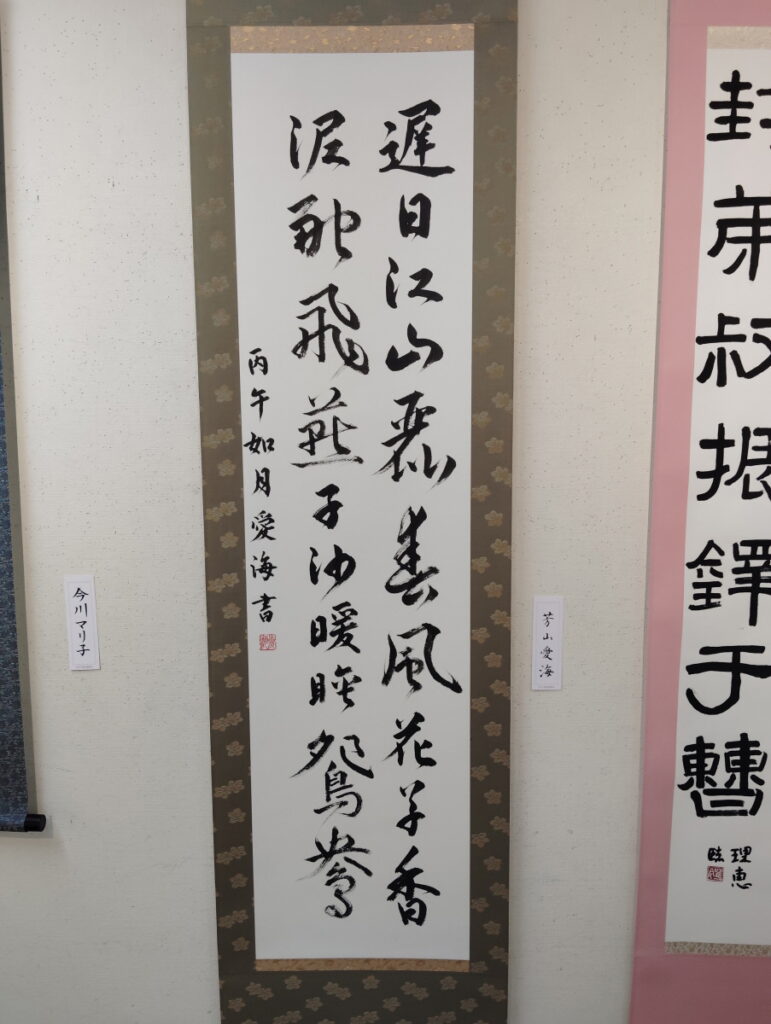 封弟叔振鐸于曹
理恵
臨
遅日江山麗春風花草香
泥融飛燕子沙暖睡鴛鴦
丙午如月愛海書
芳山愛海
今川マリ子